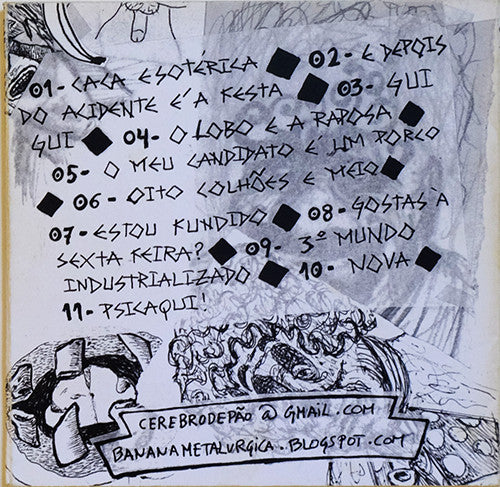 01- CACA ESOTÉRICA ◆ 02- E DEPOIS
DO ACIDENTE É A FESTA ◆ 03- GUI
GUI ◆ 04- O LOBO E A RAPOSA ◆
05- O MEU CANDIDATO É UM PORCO
◆ 06- OITO COLHÕES E MEIO ◆
07- ESTOU FUNDIDO ◆ 08- GOSTAS À
SEXTA FEIRA? ◆ 09- 3º MUNDO
INDUSTRIALIZADO ◆ 10- NOVA ◆
11- PSICAQUI!
CEREBRODEPÃO @ GMAIL.COM
BANANAMETALURGICA.BLOGSPOT.COM